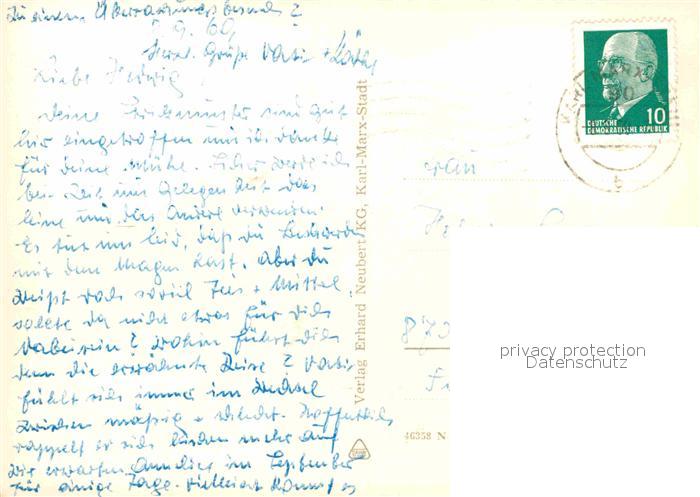 zu einem Überraschungsbesuch?
9. 60,
Herzl. Grüße Vati + Käthe
Liebe Hedwig
deine sind gut
hier eingetroffen und ich danke
für deine Mühe. werde ich
bei Zeit und Gelegenheit das
eine und das Andere verwenden.
Es tut uns leid, daß du Beschwerden
mit dem Magen hast. Aber du
weißt doch soviel Tees + Mittel
sollte da nicht etwas für dich
dabei sein? Wohin führt dich
denn die erwähnte Reise? Vati
fühlt sich immer im Wechsel
zwischen mäßig + schlecht. Hoffentlich
rappelt er sich wieder mehr auf
wir erwarten im September
für einige Tage. Vielleicht kommt es
Verlag Erhard Neubert KG, Karl-Marx-Stadt
10
DEUTSCHE
DEMOKRATISCHE REPUBLIK
873
46358 N
privacy protection
Datenschutz